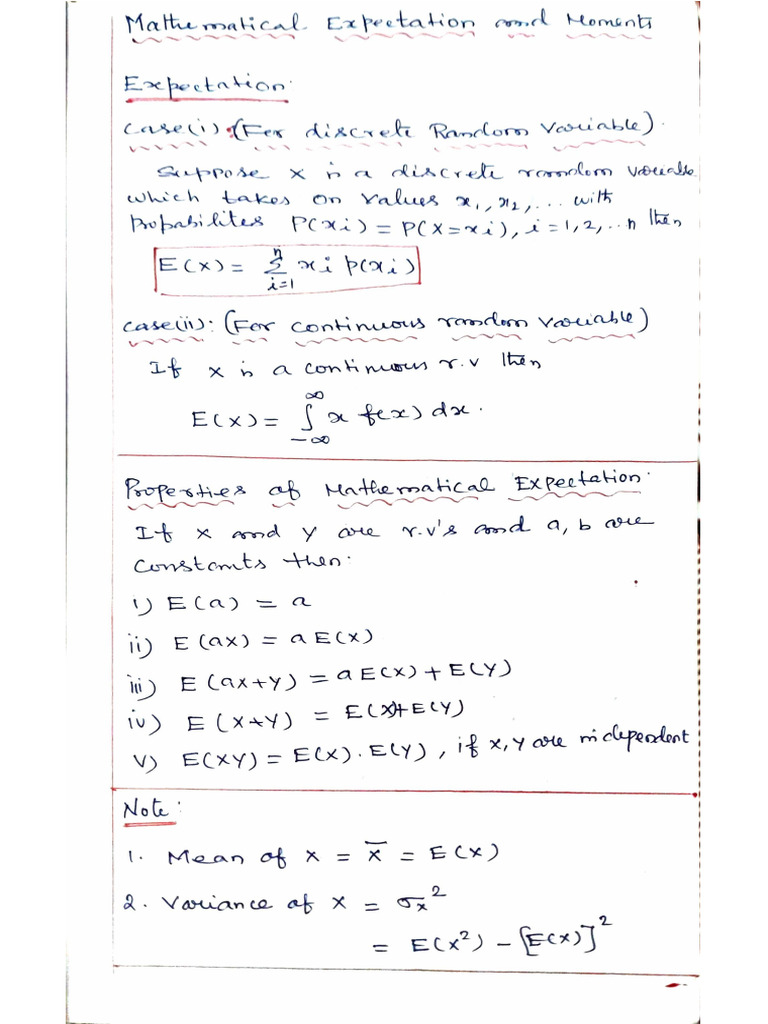 Mathematical Expectation and Moments
Expectation:
Case(i):(For discrete Random Variable).
Suppose X is a discrete random variable
which takes on values x₁, x₂, ... with
Probabilites P(xi) = P(X=xi), i=1,2,..n then
E(X) = n∑i=1 xi p(xi)
Case(ii): (For continuous random variable)
If X is a continuous r.v then
E(X) = ∫_{-∞}^{∞} x f(x) dx.
Properties of Mathematical Expectation:
If X and Y are r.v's and a, b are
Constants then:
i) E(a) = a
ii) E(ax) = a E(X)
iii) E(ax+y) = a E(X) + E(Y)
iv) E(X+Y) = E(X)+E(Y)
v) E(XY) = E(X). E(Y), if X,Y are independent
Note:
1. Mean of X = X̅ = E(X)
2. Variance of X = σx²
= E(X²) - [E(X)]²